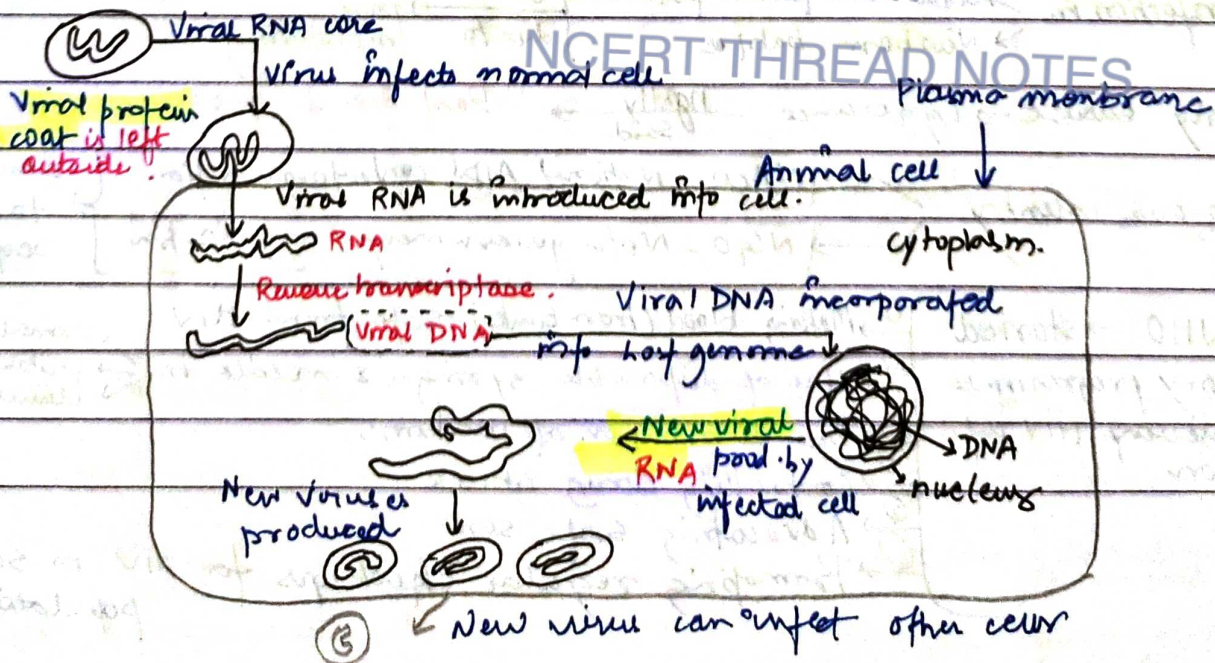 Viral RNA core
NCERT THREAD NOTES
Virus infects normal cell
Plasma membrane
Viral protein
coat is left
outside.
Animal cell
Viral RNA is introduced into cell.
RNA
cytoplasm.
Reverse transcriptase.
Viral DNA incorporated
Viral DNA
into host genome
New viral
RNA prod. by
infected cell
DNA
nucleus
New viruses
produced
New virus can infect other cells